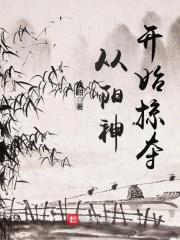 从阳神
开始掠夺
著